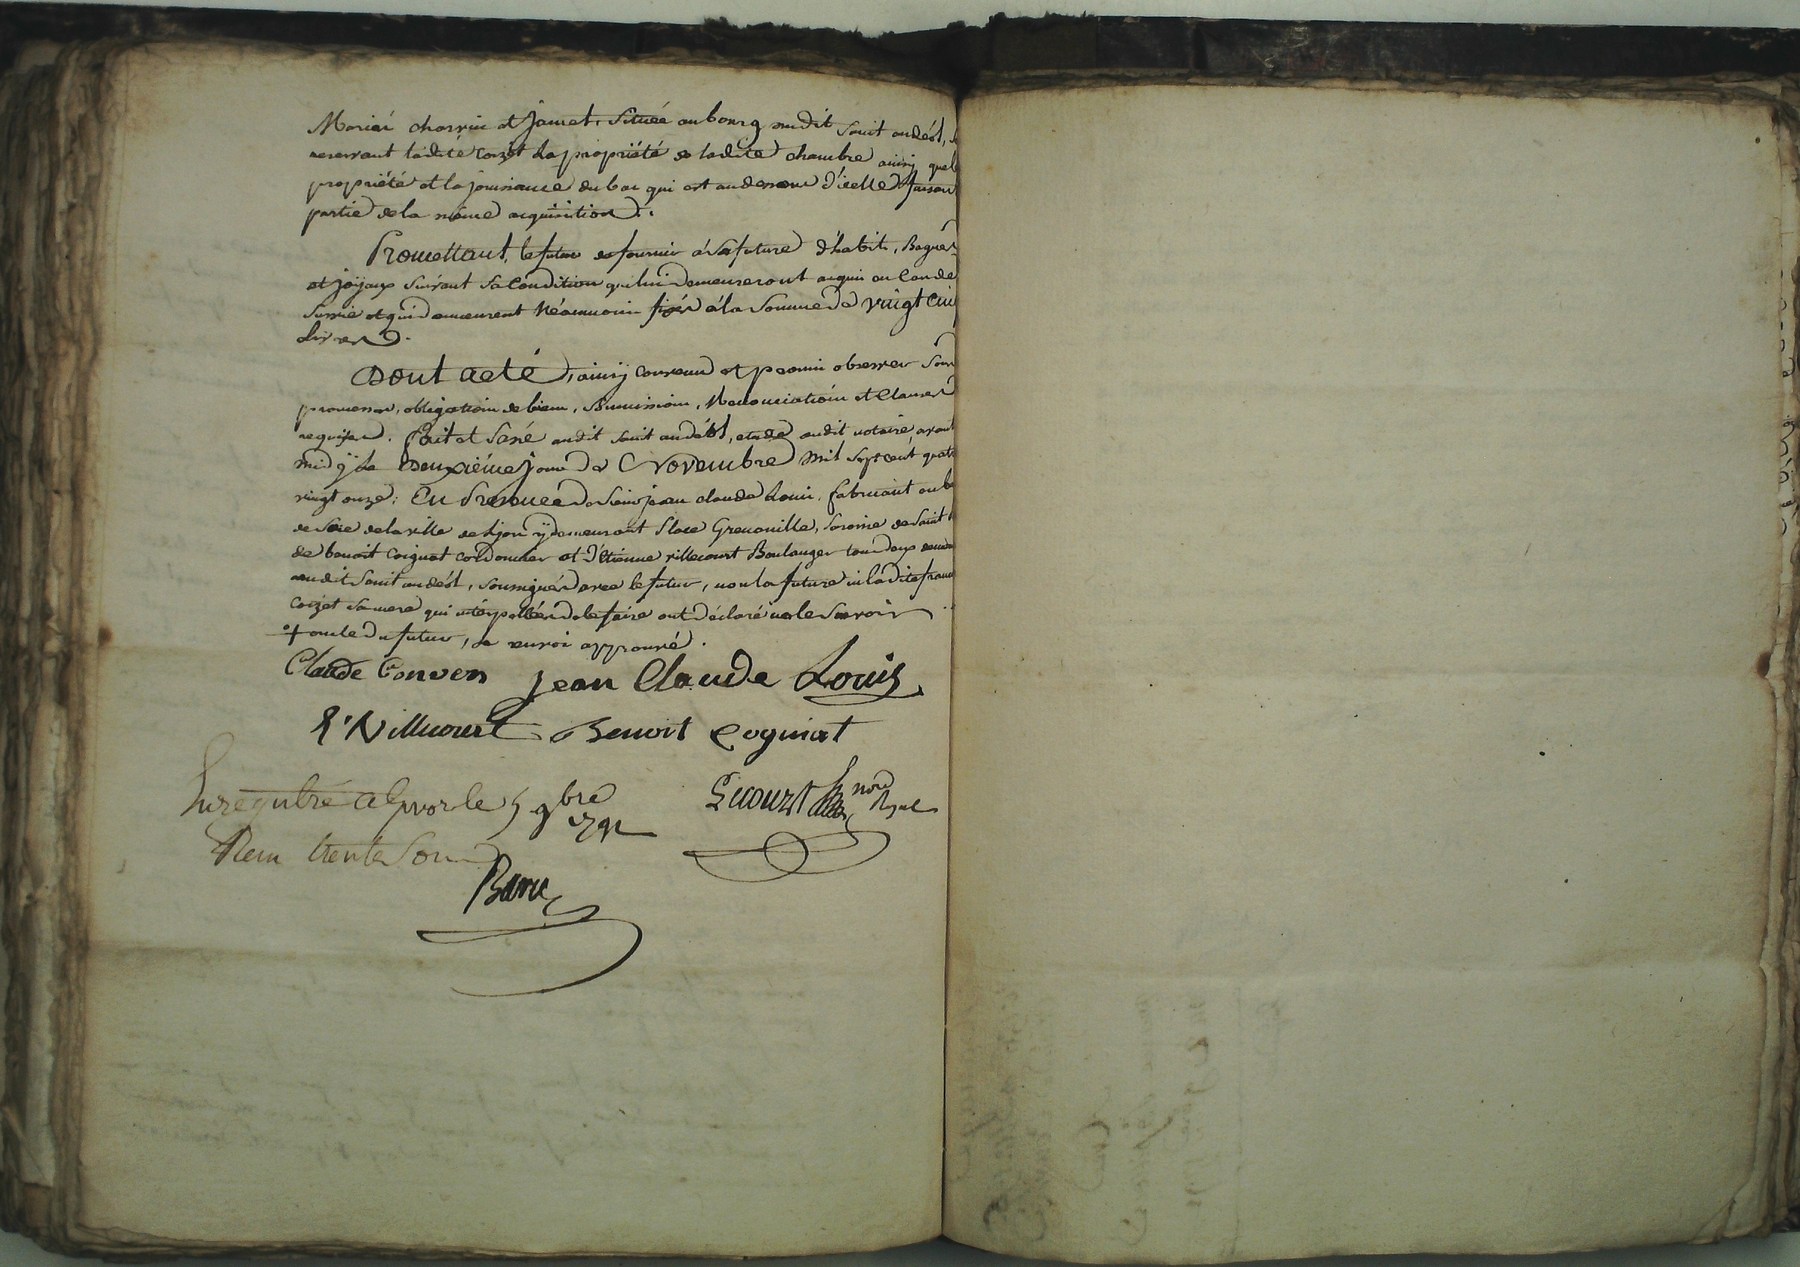 Mariai charvin et Jamet, Située au bourg mudit Saint andéol, se
reservant ladite Coizet La propriété de ladite chambre ainsy que la
propriété et la jouissance du bas qui est au dessous d'icelle faisant
partie de la même acquisition.
Promettant, le futur de fournir à sa future d'habits, Bagues
et joyaux suivant sa Condition qui lui demeureront acquis au Cas de
survie et qui demeurent Néanmoins fixés à la Somme de vingt cinq
Livres.
Dont acte, ainsy convenu et promis observer sous
promesses, obligations de biens, Soumissions, Renonciations et Clauses
requises. Fait et Passé audit saint andéol, etude dudit notaire, avant
midy Le Deuxième jour de Novembre Mil sept cent quatre
vingt onze: En Presence de Sieur jean claude Louis, fabricant en bas
de Soie de la ville de Lyon y demeurant Place Grenouille, Paroisse de Saint
de benoit Coignat Cordonnier et d'Etienne villecourt Boulanger tous deux demeurant
audit Saint andéol, soussignés avec le futur, non la future ni ladite france
Coizet sa mere qui interpellées de le faire ont déclaré ne le Savoir
+ oncle du futur, Le renvoi approuvé.
Claude Convers Jean Claude Louis
E. Villecourt Benoit Cogniat
Enregistré a Givors le 5 9bre
1791
Reçu trente Sous